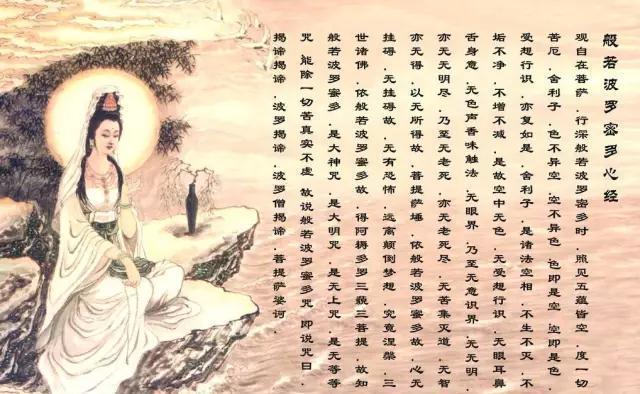 般若波罗密多心经
观自在菩萨.行深般若波罗蜜多时.照见五蕴皆空.度一切
苦厄.舍利子.色不异空.空不异色.色即是空.空即是色.
受想行识.亦复如是.舍利子.是诸法空相.不生不灭.不
垢不净.不增不减.是故空中无色.无受想行识.无眼耳鼻
舌身意.无色声香味触法.无眼界.乃至无意识界.无无明.
亦无无明尽.乃至无老死.亦无老死尽.无苦集灭道.无智
亦无得.以无所得故.菩提萨埵.依般若波罗蜜多故.心无
挂碍.无挂碍故.无有恐怖.远离颠倒梦想.究竟涅槃.三
世诸佛.依般若波罗蜜多故.得阿耨多罗三藐三菩提.故知
般若波罗蜜多.是大神咒.是大明咒.是无上咒.是无等等
咒.能除一切苦真实不虚.故说般若波罗蜜多咒.即说咒曰.
揭谛揭谛.波罗揭谛.波罗僧揭谛.菩提萨婆诃.